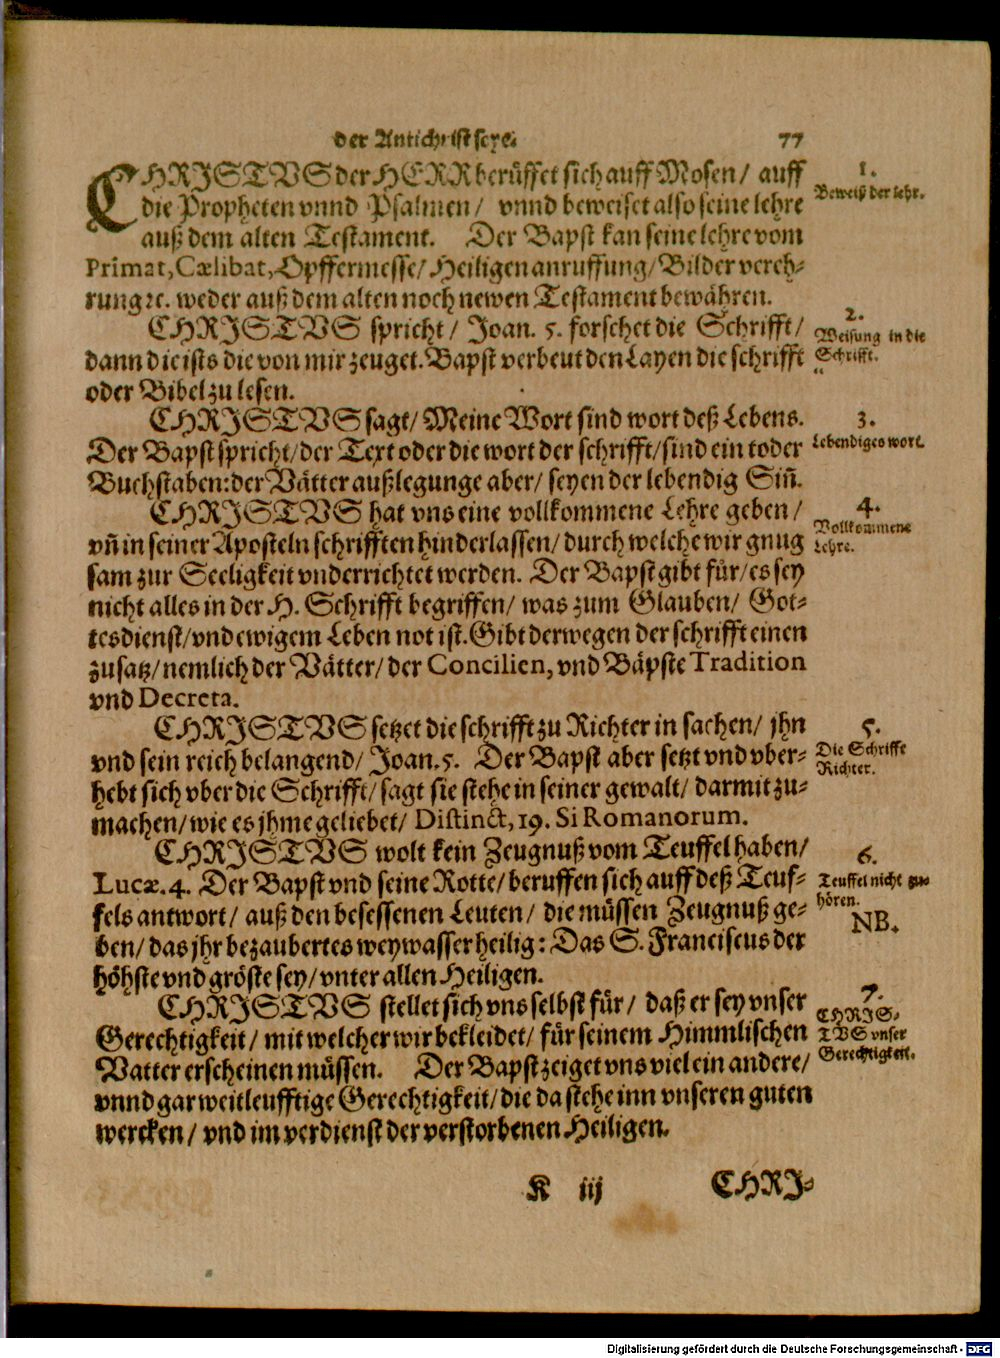 der Antichrist seye. 77
CHRISTVS der HERR berüffet sich auff Mosen/ auff
die Propheten vnnd Psalmen/ vnnd beweiset also seine lehre
auß dem alten Testament. Der Bapst kan seine lehre vom
Primat, Cælibat, Opffermesse/ Heiligen anruffung/ Bilder vereh-
rung ꝛc. weder auß dem alten noch newen Testament bewähren.
1.
Beweiß der lehr.
CHRISTVS spricht/ Joan. 5. forschet die Schrifft/
dann die ists die von mir zeuget. Bapst verbeut den Layen die schrifft
oder Bibel zu lesen.
2.
Weisung in die
Schrifft.
CHRISTVS sagt/ Meine Wort sind wort deß Lebens.
Der Bapst spricht/ der Text oder die wort der schrifft/ sind ein toder
Buchstaben: der Vätter außlegunge aber/ seyen der lebendig Sin̄.
3.
Lebendiges wort.
CHRISTVS hat vns eine vollkommene Lehre geben/
vn̄ in seiner Aposteln schrifften hinderlassen/ durch welche wir gnug
sam zur Seeligkeit vnderrichtet werden. Der Bapst gibt für/ es sey
nicht alles in der H. Schrifft begriffen/ was zum Glauben/ Got-
tesdienst/ vnd ewigem Leben not ist. Gibt derwegen der schrifft einen
zusatz/ nemlich der Vätter/ der Concilien, vnd Bäpste Tradition
vnd Decreta.
4.
Vollkommene
Lehre.
CHRISTVS setzet die schrifft zu Richter in sachen/ jhn
vnd sein reich belangend/ Joan. 5. Der Bapst aber setzt vnd vber-
hebt sich vber die Schrifft/ sagt sie stehe in seiner gewalt/ darmit zu-
machen/ wie es jhme geliebet/ Distinct, 19. Si Romanorum.
5.
Die Schrifft
Richter.
CHRISTVS wolt kein Zeugnuß vom Teuffel haben/
Lucæ. 4. Der Bapst vnd seine Rotte/ beruffen sich auff deß Teuf-
fels antwort/ auß den besessenen Leuten/ die müssen Zeugnuß ge-
ben/ das jhr bezaubertes weywasser heilig: Das S. Franciscus der
höhste vnd gröste sey/ vnter allen Heiligen.
6.
Teuffel nicht zu-
hören.
NB.
CHRISTVS stellet sich vns selbst für/ daß er sey vnser
Gerechtigkeit/ mit welcher wir bekleidet/ für seinem Himmlischen
Vatter erscheinen müssen. Der Bapst zeiget vns viel ein andere/
vnnd gar weitleufftige Gerechtigkeit/ die da stehe inn vnseren guten
wercken/ vnd im verdienst der verstorbenen Heiligen.
7.
CHRIS-
TVS vnser
Gerechtigkeit.
K iij CHRI-
Digitalisierung gefördert durch die Deutsche Forschungsgemeinschaft - DFG